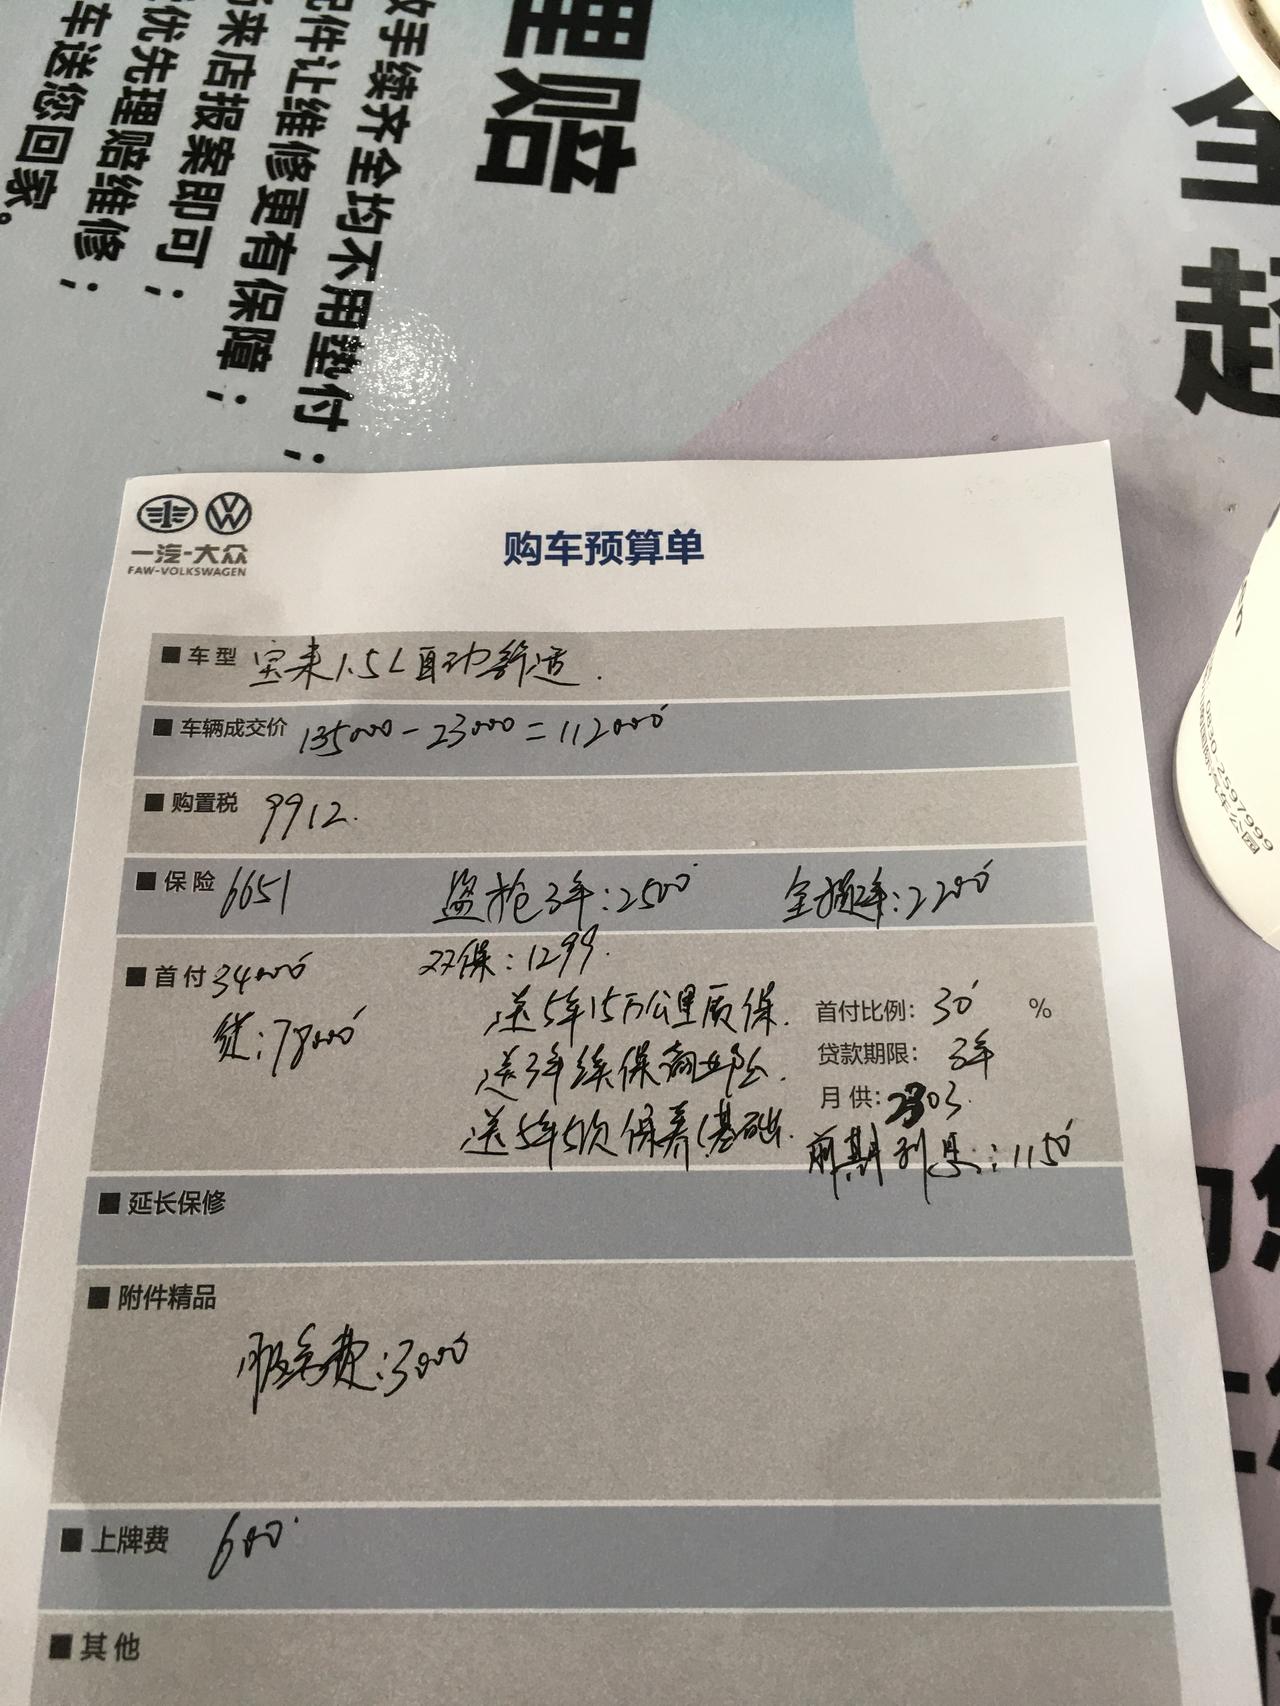 理赔
手续齐全均不用垫付；
配件让维修更有保障；
来店报案即可；
优先理赔维修；
车送您回家。
全
超
一汽-大众
FAW-VOLKSWAGEN
购车预算单
车型 宝来1.5L自动舒适.
车辆成交价 135000-23000=112000
购置税 9912.
保险 6651 盗抢3年:2500 全损2年:2200
双保:1299.
首付 34000
贷:78000
送5年15万公里质保.
送3年续保商业险.
送5年5次保养(基础.
首付比例: 30 %
贷款期限: 3年
月供: 2303.
前期利息:1150
延长保修
附件精品
服务费:3000
上牌费 600
其他
0830-2597999
汽车公园